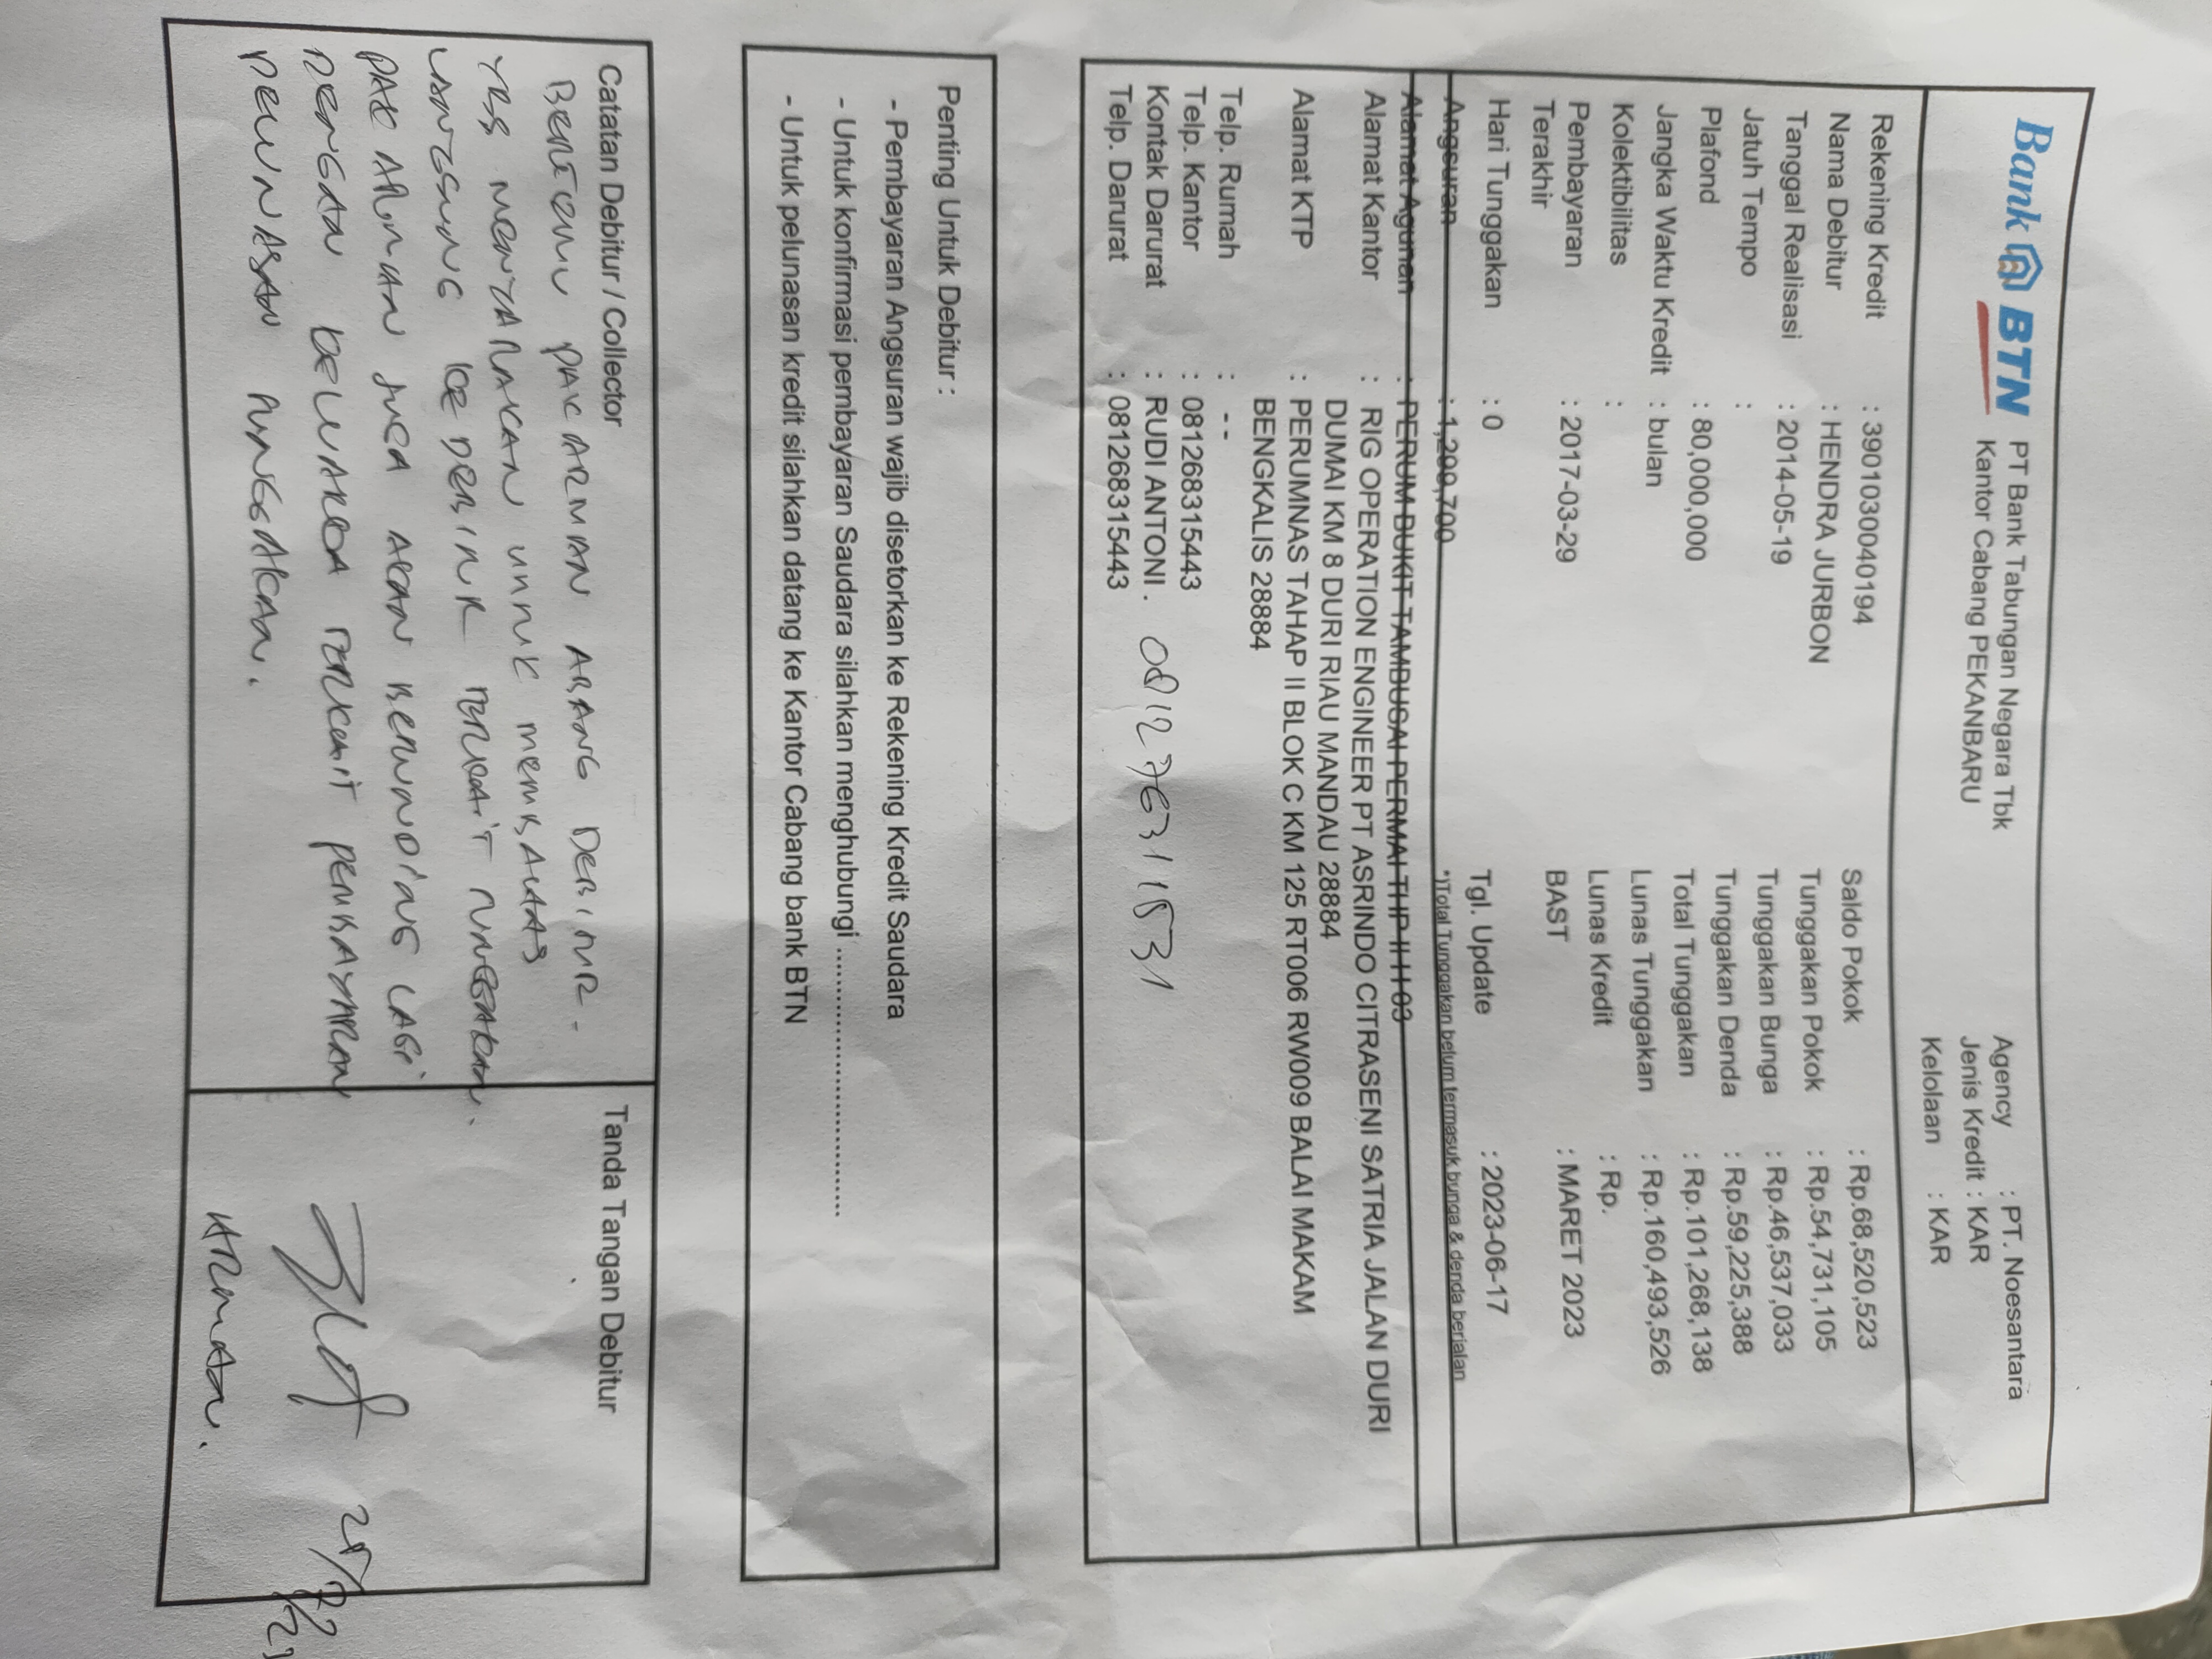 Bank BTN
PT Bank Tabungan Negara Tbk
Kantor Cabang PEKANBARU
Agency : PT. Noesantara
Jenis Kredit : KAR
Kelolaan : KAR
Rekening Kredit : 3901030040194
Nama Debitur : HENDRA JURBON
Tanggal Realisasi : 2014-05-19
Jatuh Tempo :
Plafond : 80,000,000
Jangka Waktu Kredit : bulan
Kolektibilitas :
Pembayaran Terakhir : 2017-03-29
Hari Tunggakan : 0
Angsuran : 1,299,700
Saldo Pokok : Rp.68,520,523
Tunggakan Pokok : Rp.54,731,105
Tunggakan Bunga : Rp.46,537,033
Tunggakan Denda : Rp.59,225,388
Total Tunggakan : Rp.101,268,138
Lunas Tunggakan : Rp.160,493,526
Lunas Kredit : Rp.
BAST : MARET 2023
Tgl. Update : 2023-06-17
*)Total Tunggakan belum termasuk bunga & denda berjalan
Alamat Agunan : PERUM BUKIT TAMBUSAI PERMAI THP II H 03
Alamat Kantor : RIG OPERATION ENGINEER PT ASRINDO CITRASENI SATRIA JALAN DURI
DUMAI KM 8 DURI RIAU MANDAU 28884
Alamat KTP : PERUMNAS TAHAP II BLOK C KM 125 RT006 RW009 BALAI MAKAM
BENGKALIS 28884
Telp. Rumah : --
Telp. Kantor : 081268315443
Kontak Darurat : RUDI ANTONI .
Telp. Darurat : 081268315443
Penting Untuk Debitur :
- Pembayaran Angsuran wajib disetorkan ke Rekening Kredit Saudara
- Untuk konfirmasi pembayaran Saudara silahkan menghubungi ...................................
- Untuk pelunasan kredit silahkan datang ke Kantor Cabang bank BTN
Catatan Debitur / Collector
BERTEMU PAK ARMAN ABANG DEBITUR.
YBS MENYARANKAN UNTUK MEMBAHAS
LANGSUNG KE DEBITUR TERKAIT TUNGGAKAN.
PAK ARMAN JUGA AKAN BERUNDING LAGI
DENGAN KELUARGA TERKAIT PEMBAYARAN
PELUNASAN TUNGGAKAN.
Tanda Tangan Debitur
ARMAN.